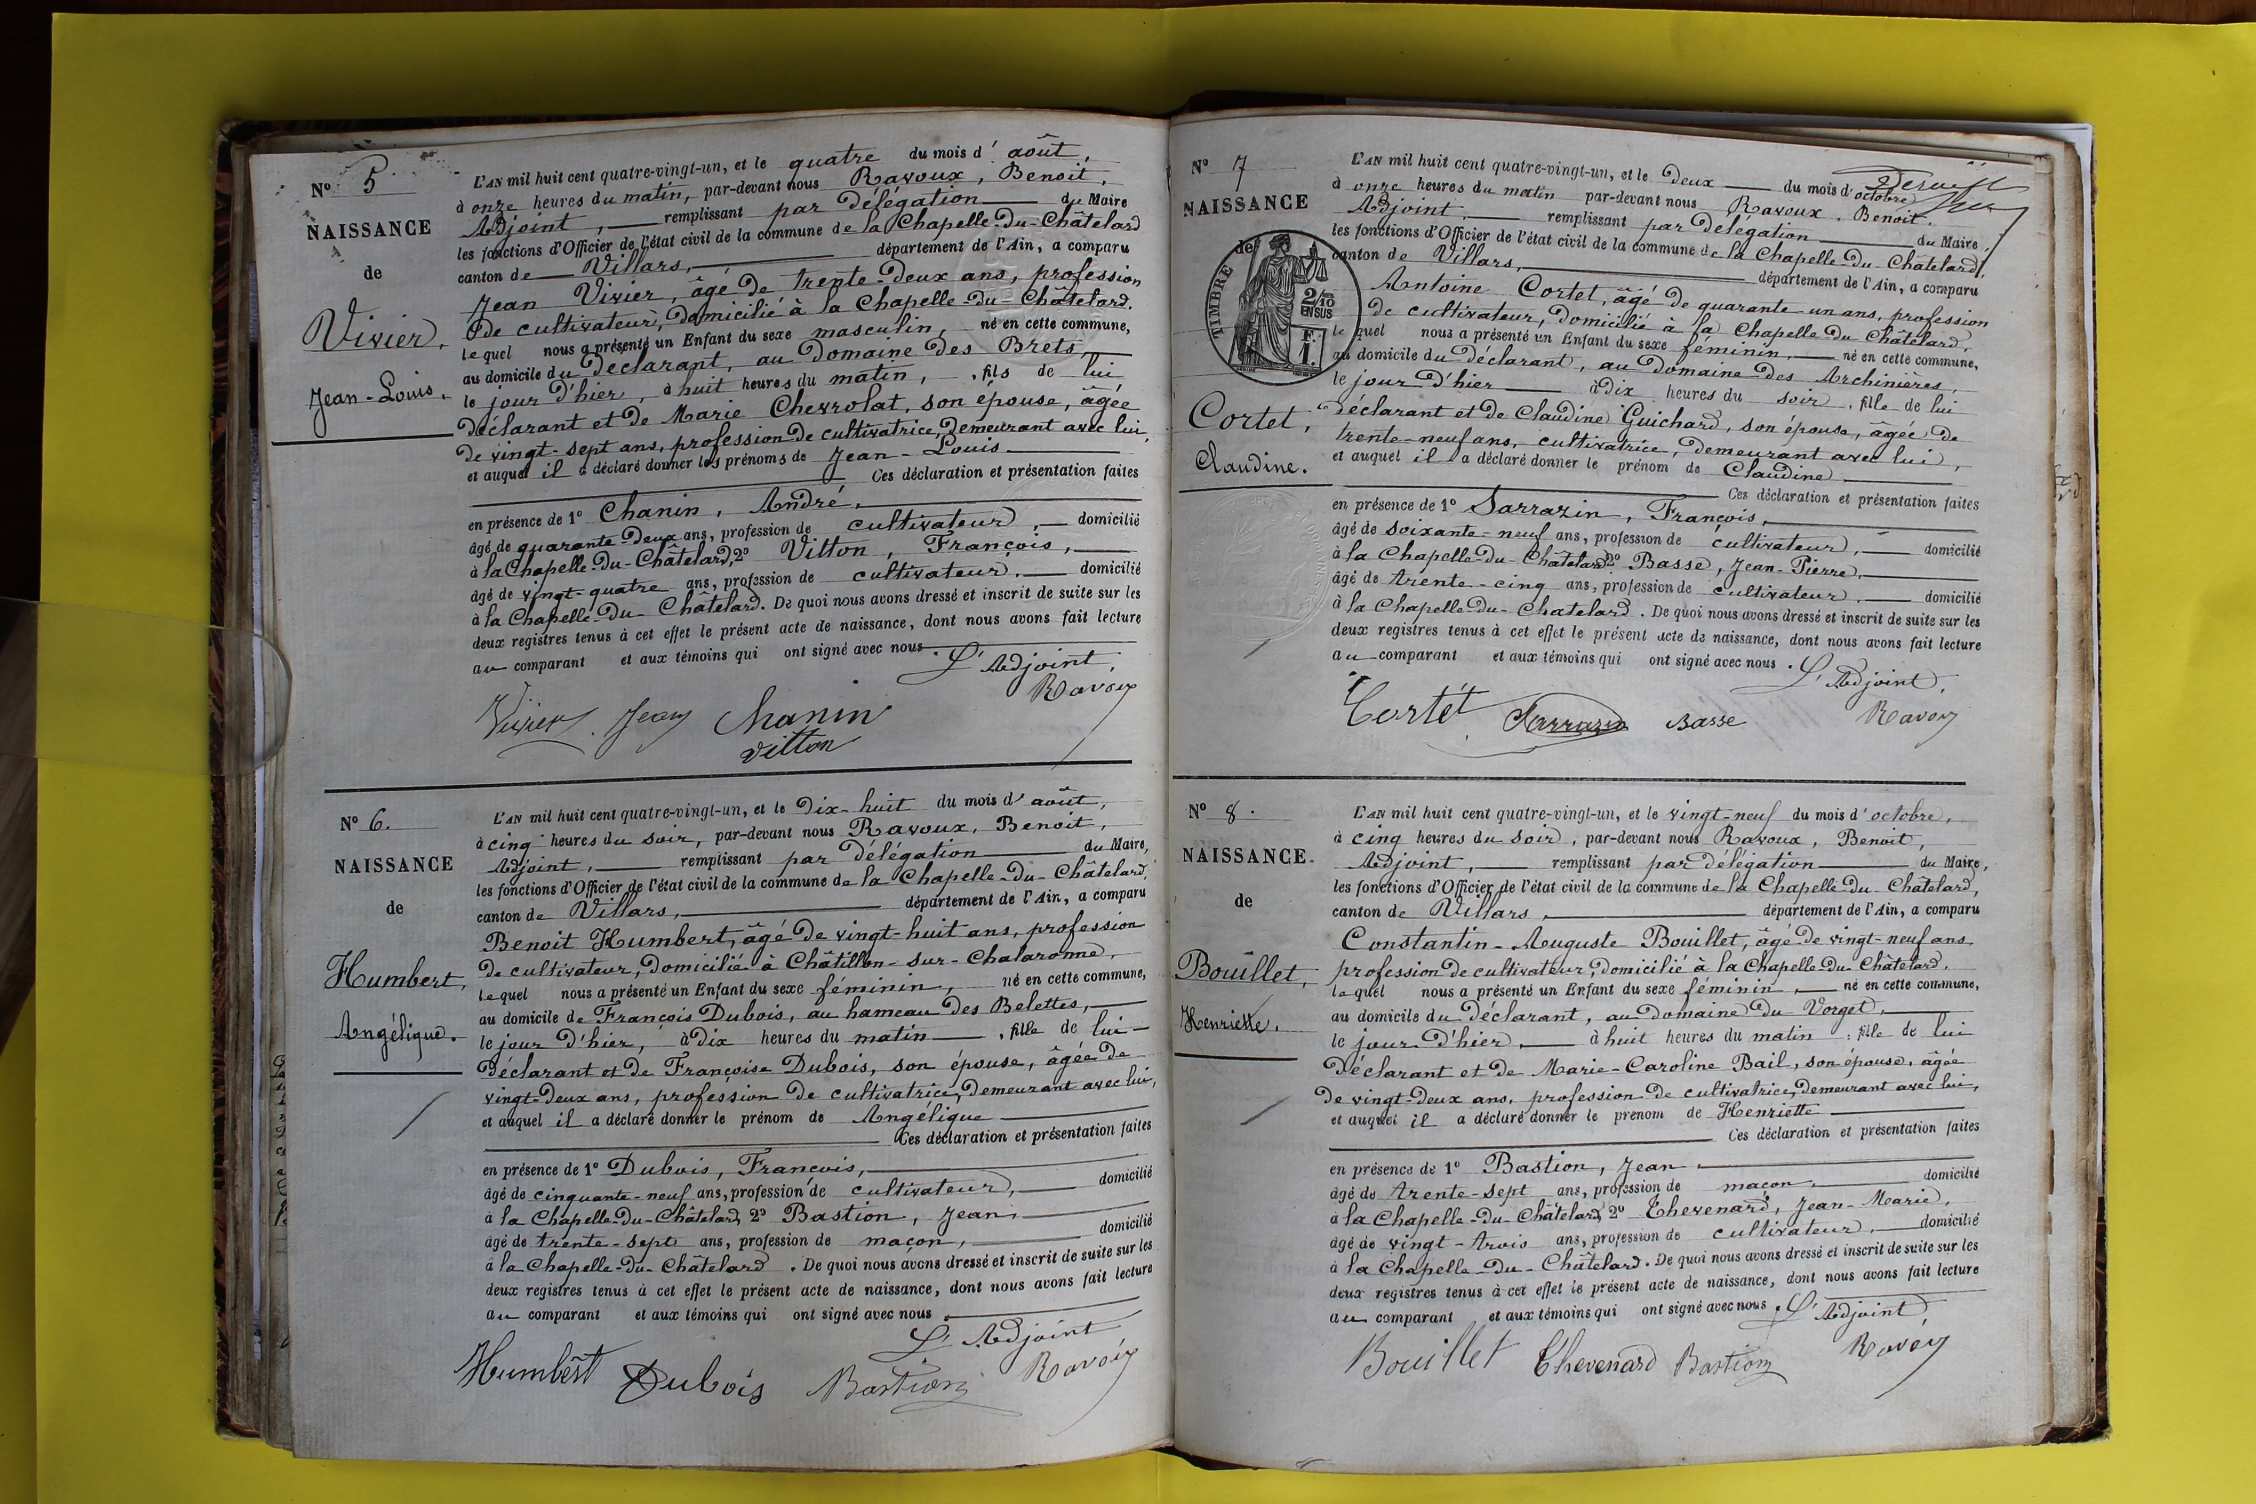 N° 5
NAISSANCE
de
Vivier,
Jean-Louis.
L'AN mil huit cent quatre-vingt-un, et le quatre du mois d'août,
à onze heures du matin, par-devant nous Ravoux, Benoit,
Adjoint, remplissant par délégation du Maire
les fonctions d'Officier de l'état civil de la commune de la Chapelle-du-Châtelard
canton de Villars, département de l'Ain, a comparu
Jean Vivier, âgé de trente-deux ans, profession
de cultivateur, domicilié à la Chapelle-du-Châtelard.
lequel nous a présenté un Enfant du sexe masculin, né en cette commune,
au domicile du déclarant, au Domaine des Brets,
le jour d'hier, à huit heures du matin, fils de lui
déclarant et de Marie Chevrolat, son épouse, âgée
de vingt-sept ans, profession de cultivatrice, demeurant avec lui,
et auquel il a déclaré donner les prénoms de Jean-Louis
Ces déclaration et présentation faites
en présence de 1° Chanin, André,
âgé de quarante-deux ans, profession de cultivateur, domicilié
à la Chapelle-du-Châtelard, 2° Vitton, François,
âgé de vingt-quatre ans, profession de cultivateur, domicilié
à la Chapelle-du-Châtelard. De quoi nous avons dressé et inscrit de suite sur les
deux registres tenus à cet effet le présent acte de naissance, dont nous avons fait lecture
au comparant et aux témoins qui ont signé avec nous.
L'Adjoint,
Vivier Jean Chanin Ravoux
Vitton
N° 6.
NAISSANCE
de
Humbert,
Angélique.
L'AN mil huit cent quatre-vingt-un, et le dix-huit du mois d'août,
à cinq heures du soir, par-devant nous Ravoux, Benoit,
Adjoint, remplissant par délégation du Maire,
les fonctions d'Officier de l'état civil de la commune de la Chapelle-du-Châtelard,
canton de Villars, département de l'Ain, a comparu
Benoit Humbert, âgé de vingt-huit ans, profession
de cultivateur, domicilié à Châtillon-sur-Chalaronne,
lequel nous a présenté un Enfant du sexe féminin, né en cette commune,
au domicile de François Dubois, au hameau des Belettes,
le jour d'hier, à dix heures du matin, fille de lui
déclarant et de Françoise Dubois, son épouse, âgée de
vingt-deux ans, profession de cultivatrice, demeurant avec lui,
et auquel il a déclaré donner le prénom de Angélique
Ces déclaration et présentation faites
en présence de 1° Dubois, François,
âgé de cinquante-neuf ans, profession de cultivateur, domicilié
à la Chapelle-du-Châtelard, 2° Bastion, Jean,
âgé de trente-sept ans, profession de maçon, domicilié
à la Chapelle-du-Châtelard. De quoi nous avons dressé et inscrit de suite sur les
deux registres tenus à cet effet le présent acte de naissance, dont nous avons fait lecture
au comparant et aux témoins qui ont signé avec nous.
L'Adjoint
Humbert Dubois Bastion Ravoux
N° 7
NAISSANCE
de
TIMBRE
2/10 EN SUS
F. 1.
Cortet,
Claudine.
L'AN mil huit cent quatre-vingt-un, et le deux du mois d'octobre
à onze heures du matin par-devant nous Ravoux, Benoit,
Adjoint, remplissant par délégation du Maire,
les fonctions d'Officier de l'état civil de la commune de la Chapelle-du-Châtelard,
canton de Villars, département de l'Ain, a comparu
Antoine Cortet, âgé de quarante un ans, profession
de cultivateur, domicilié à la Chapelle du Châtelard,
lequel nous a présenté un Enfant du sexe féminin, né en cette commune,
au domicile du déclarant, au Domaine des Archinières,
le jour d'hier à dix heures du soir, fille de lui
déclarant et de Claudine Guichard, son épouse, âgée de
trente-neuf ans, cultivatrice, demeurant avec lui,
et auquel il a déclaré donner le prénom de Claudine
Ces déclaration et présentation faites
en présence de 1° Sarrazin, François,
âgé de soixante-neuf ans, profession de cultivateur, domicilié
à la Chapelle-du-Châtelard 2° Basse, Jean-Pierre,
âgé de trente-cinq ans, profession de cultivateur, domicilié
à la Chapelle-du-Chatelard. De quoi nous avons dressé et inscrit de suite sur les
deux registres tenus à cet effet le présent acte de naissance, dont nous avons fait lecture
au comparant et aux témoins qui ont signé avec nous.
L'Adjoint,
Cortét Sarrazin Basse Ravoux
N° 8.
NAISSANCE.
de
Bouillet,
Henriette.
L'AN mil huit cent quatre-vingt-un, et le vingt-neuf du mois d'octobre,
à cinq heures du soir, par-devant nous Ravoux, Benoit,
Adjoint, remplissant par délégation du Maire,
les fonctions d'Officier de l'état civil de la commune de la Chapelle-du-Châtelard,
canton de Villars, département de l'Ain, a comparu
Constantin-Auguste Bouillet, âgé de vingt-neuf ans
profession de cultivateur, domicilié à la Chapelle-du-Châtelard,
lequel nous a présenté un Enfant du sexe féminin, né en cette commune,
au domicile du déclarant, au Domaine du Vorget,
le jour d'hier, à huit heures du matin, fille de lui
déclarant et de Marie-Caroline Bail, son épouse, âgée
de vingt-deux ans, profession de cultivatrice, demeurant avec lui,
et auquel il a déclaré donner le prénom de Henriette
Ces déclaration et présentation faites
en présence de 1° Bastion, Jean
âgé de trente-sept ans, profession de maçon, domicilié
à la Chapelle-du-Châtelard, 2° Thevenard, Jean-Marie,
âgé de vingt-trois ans, profession de cultivateur, domicilié
à la Chapelle-du-Châtelard. De quoi nous avons dressé et inscrit de suite sur les
deux registres tenus à cet effet le présent acte de naissance, dont nous avons fait lecture
au comparant et aux témoins qui ont signé avec nous.
L'Adjoint,
Bouillet Thevenard Bastion Ravoux